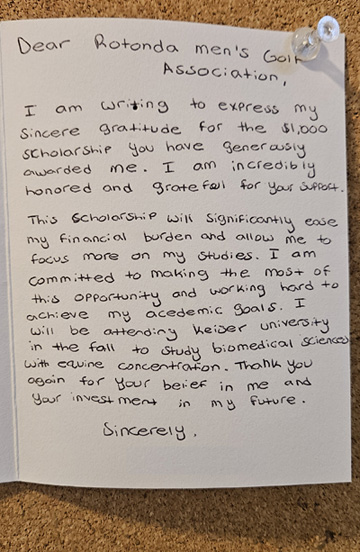 Dear Rotonda men's Golf
Association,
I am writing to express my
sincere gratitude for the $1,000
scholarship you have generously
awarded me. I am incredibly
honored and gratefull for your support.
This scholarship will significantly ease
my financial burden and allow me to
focus more on my studies. I am
committed to making the most of
this opportunity and working hard to
achieve my academic goals. I
will be attending keiser university
in the fall to study biomedical sciences
with equine concentration. Thank you
again for your belief in me and
your investment in my future.
Sincerely,